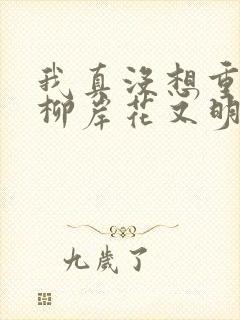 我真没想重
柳岸花又明
九歲了